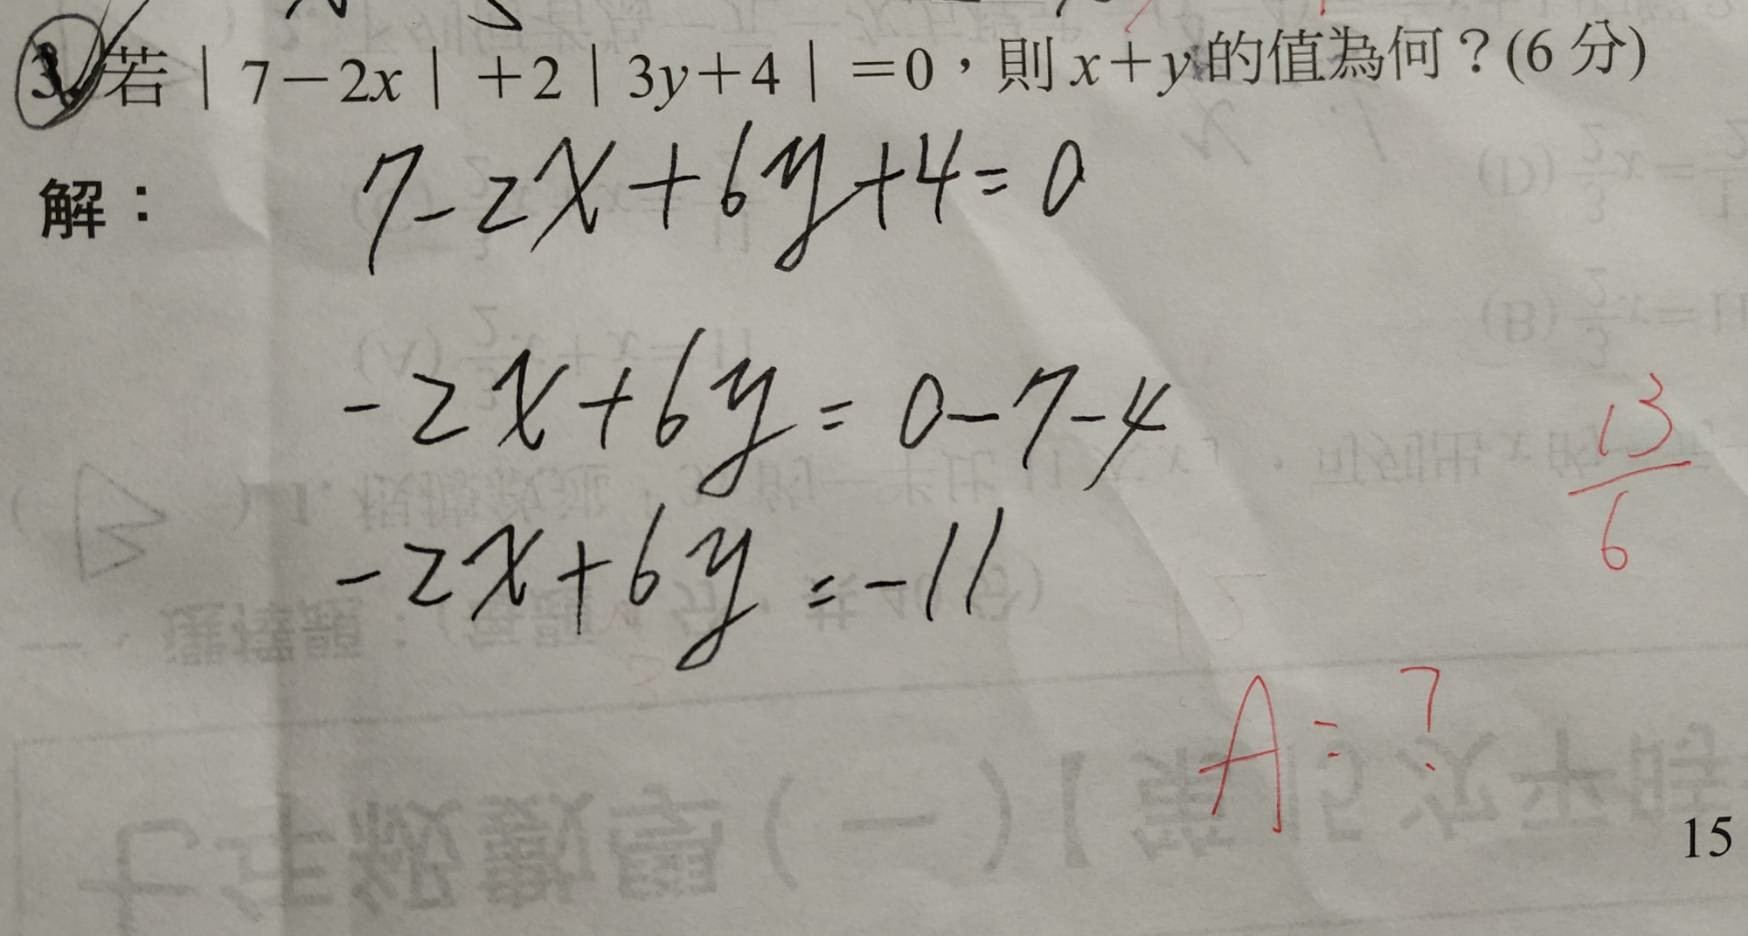 3. 若 | 7－2x | ＋2 | 3y＋4 | ＝0，則 x＋y 的值為何？(6 分)
解：
7-2x+6y+4=0
-2x+6y=0-7-4
-2x+6y=-11
13/6
A=?
15